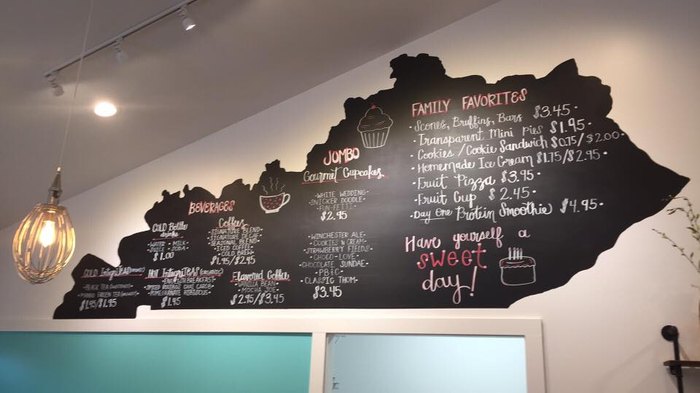 BEVERAGES
COLD Bottle
drinks
WATER - MILK
JUICE - SODA
$1.00
Coffees
SIGNATURE BLEND
SEASONAL BLEND
ICED COFFEE
COLD BREW
$1.95/$2.45
COLD
BLACK TEA
MANGO GREEN TEA
$1.45/$1.95
HOT
$1.95
Flavored Coffee
VANILLA BEAN
MOCHA JOE
$2.95/$3.45
JUMBO
Gourmet Cupcakes
-WHITE WEDDING-
-SNICKER DOODLE-
-FUN-FETTI-
$2.95
-WINCHESTER ALE-
-COOKIES & CREAM-
-STRAWBERRY FIELDS-
-CHOCO-LOVE-
-CHOCOLATE SUNDAE-
-PB & C-
-CLASSIC THOM-
$3.45
FAMILY FAVORITES
• Scones, Bruffins, Bars $3.45•
• Transparent Mini Pies $1.95•
• Cookies/Cookie Sandwich $0.75/$2.00•
• Homemade Ice Cream $1.75/$2.95•
• Fruit Pizza $3.95•
• Fruit Cup $2.45•
• Day One Protein Smoothie $4.95•
Have yourself a
sweet
day!